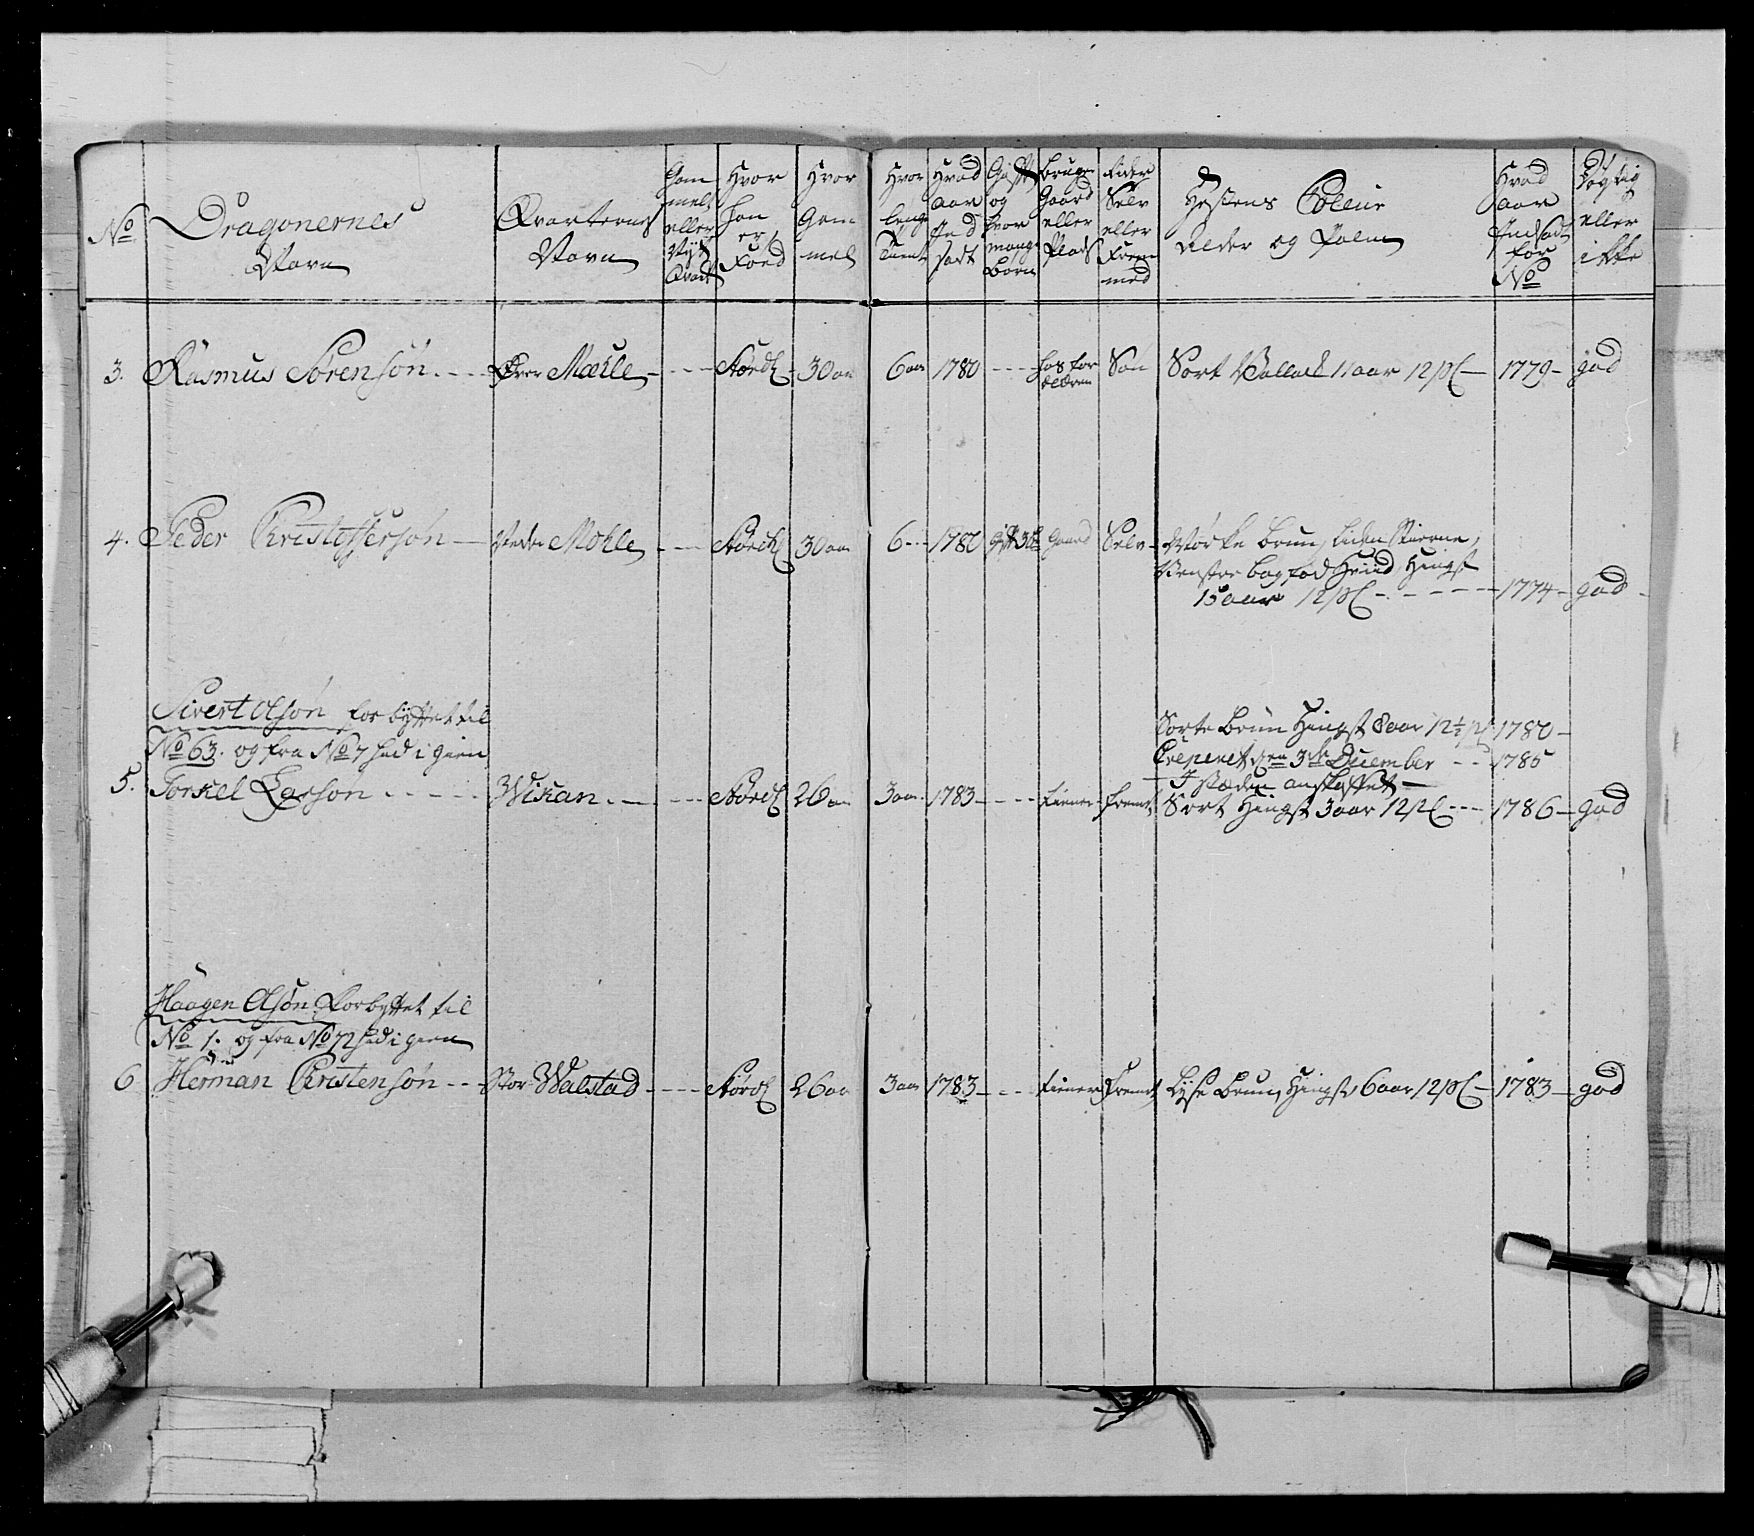 No
Dragonernes
Navn
Qvarterens
Navn
Gam
melt
eller
Nyt
Qvart
Hvor
han
er
Föed
Hvor
Gam
mel
Hvor
længe
Tient
Hvad
aar
Ind
sadt
Gift
og
hvor
mange
Børn
Bruger
Gaard
eller
Plads
Rider
Selv
eller
Frem
med
Hestens Coleur
Alder og Palm
Hvad
aar
Indsadt
for
No
Døgtig
eller
ikke
3. Rasmus Sörensön - - - Øvre Mæhle - - - - Størd - 30 aar 6 aar 1780 - - - hos for
ældren Søn Sort Vallack 11 aar 12 pl - 1779 - god
4. Peder Christoffersön - Nedre Mohle - - - Størd 30 aar 6 - - 1780 gift 3 b Gaard Selv - Mörke brun, liden Stierne,
Venstre bagfod Hviid, Hingst
15 aar 12 pl - - - - - 1774 - god -
Sivert Olsön forbyttet til
No 63. og fra No 7 had igien
5. Torkel Larson - - - - - Wikan - - - - - Størd 26 aar 3 aar 1783 - - - - tiener - fremt
Sorte brun Hingst 8 aar 12½ pl 1780 -
Creperet den 3de December - - 1785
I stæden anskaffet -
Sort Hingst 3 aar 12 pl - - - 1786 - god
Haagen Olsön Forbyttet til
No 1. og fra No 72 had igien
6 Herman Christensön - - - Stor Walstad - - - - Størd 26 aar 3 aar 1783 - - - - tiener fremt Lyse brun, Hingst 6 aar 12 pl - 1783 - god